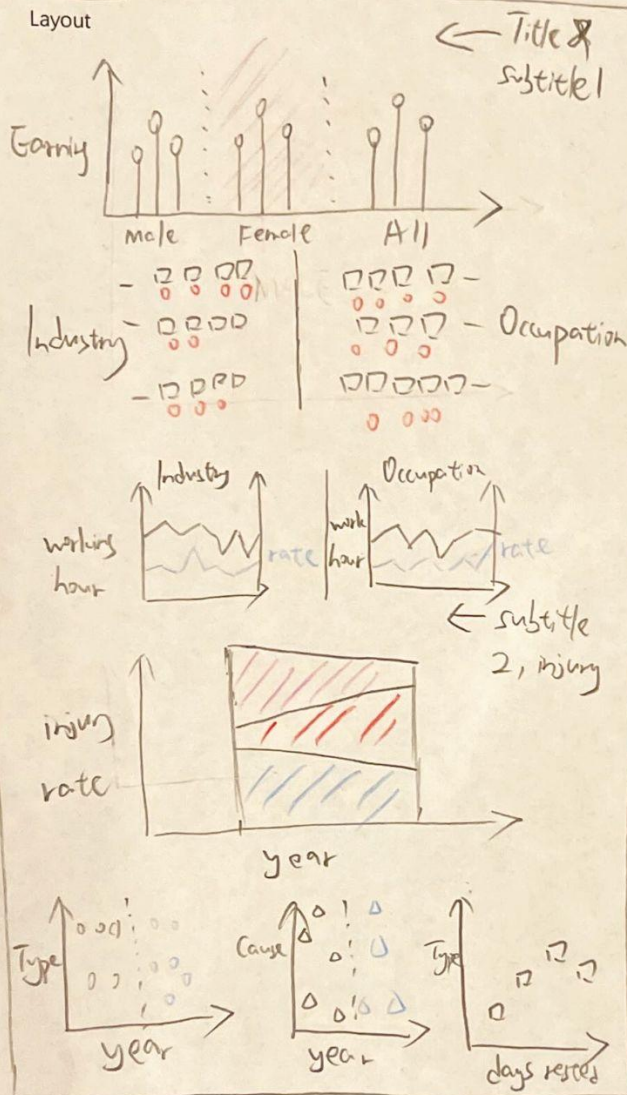 Layout
← Title &
subtitle 1
Earning
Male Female All
Industry
Occupation
Industry
Occupation
working
hour
rate
work
hour
rate
← subtitle
2, injury
injury
rate
year
Type
year
Cause
year
Type
days rested